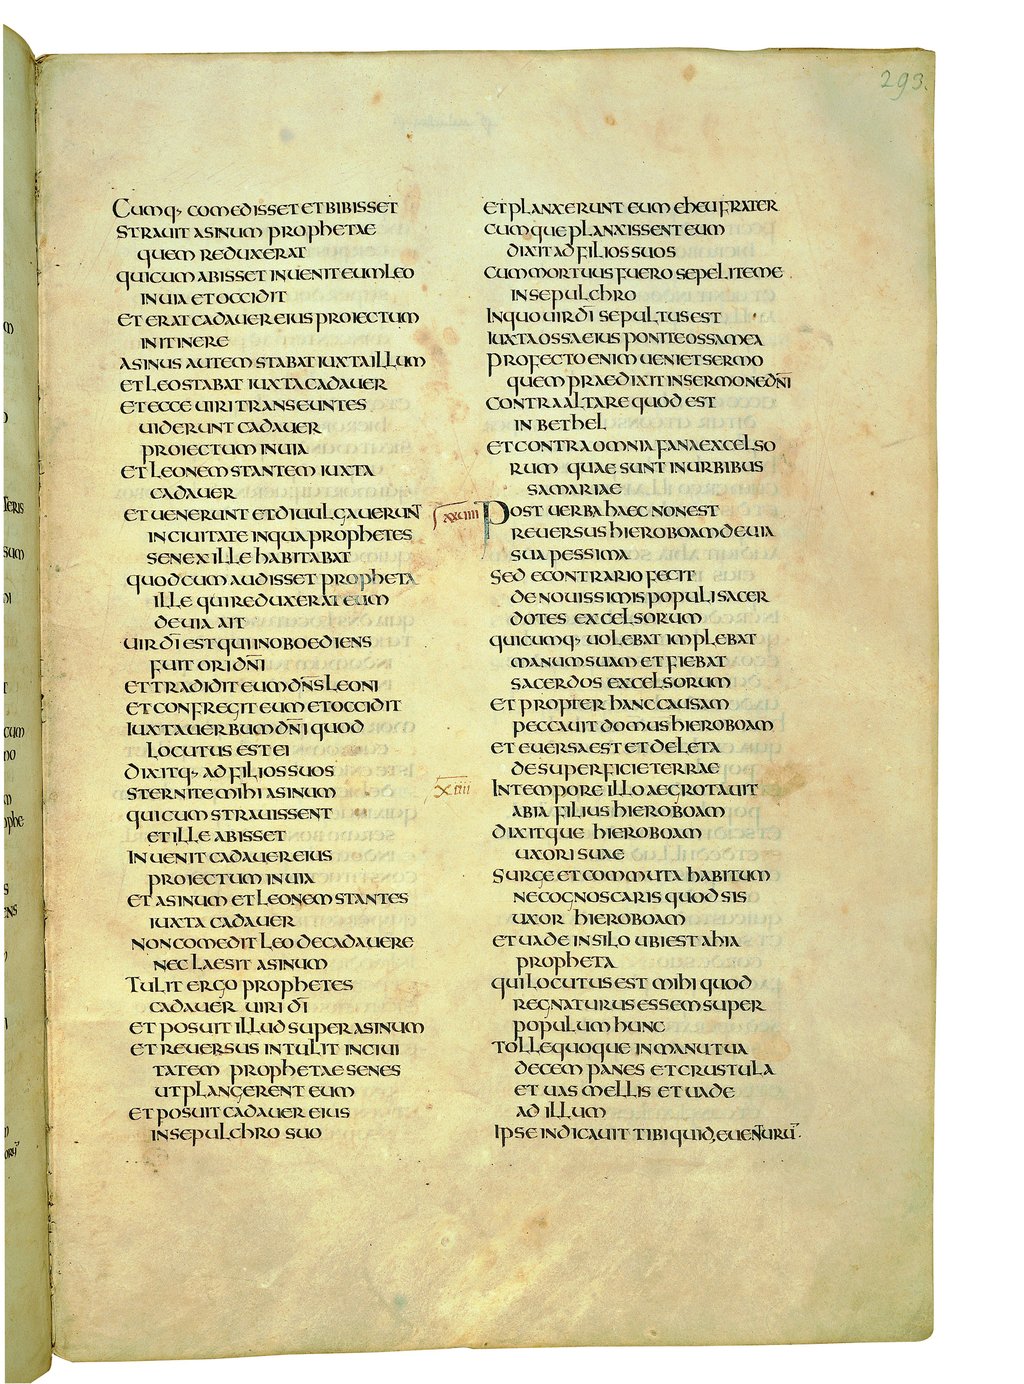 293.
Cumq; comedisset et bibisset
strauit asinum prophetae
quem reduxerat
qui cum abisset inuenit eum leo
in uia et occidit
et erat cadauer eius proiectum
in itinere
asinus autem stabat iuxta illum
et leo stabat iuxta cadauer
et ecce uiri transeuntes
uiderunt cadauer
proiectum in uia
et leonem stantem iuxta
cadauer
et uenerunt et diuulgauerunt
in ciuitate in qua prophetes
senex ille habitabat
quod cum audisset propheta
ille qui reduxerat eum
de uia ait
uir dī est qui inoboediens
fuit ori dn̄i
et tradidit eum dn̄s leoni
et confregit eum et occidit
iuxta uerbum dn̄i quod
locutus est ei
dixitq; ad filios suos
sternite mihi asinum
qui cum strauissent
et ille abisset
inuenit cadauer eius
proiectum in uia
et asinum et leonem stantes
iuxta cadauer
non comedit leo de cadauere
nec laesit asinum
Tulit ergo prophetes
cadauer uiri dī
et posuit illud super asinum
et reuersus intulit in ciui
tatem prophetae senes
ut plangerent eum
et posuit cadauer eius
in sepulchro suo
et planxerunt eum eheu frater
cumque planxissent eum
dixit ad filios suos
cum mortuus fuero sepelite me
in sepulchro
in quo uir dī sepultus est
iuxta ossa eius ponite ossa mea
profecto enim ueniet sermo
quem praedixit in sermone dn̄i
contra altare quod est
in bethel
et contra omnia fana excelso
rum quae sunt in urbibus
samariae
Post uerba haec non est
reuersus hieroboam de uia
sua pessima
sed e contrario fecit
de nouissimis populi sacer
dotes excelsorum
quicumq; uolebat implebat
manum suam et fiebat
sacerdos excelsorum
et propter hanc causam
peccauit domus hieroboam
et euersa est et deleta
de superficie terrae
xiiii
In tempore illo aegrotauit
abia filius hieroboam
dixitque hieroboam
uxori suae
surge et commuta habitum
ne cognoscaris quod sis
uxor hieroboam
et uade in silo ubi est ahia
propheta
qui locutus est mihi quod
regnaturus essem super
populum hunc
tolle quoque in manu tua
decem panes et crustula
et uas mellis et uade
ad illum
ipse indicauit tibi quid euenturū